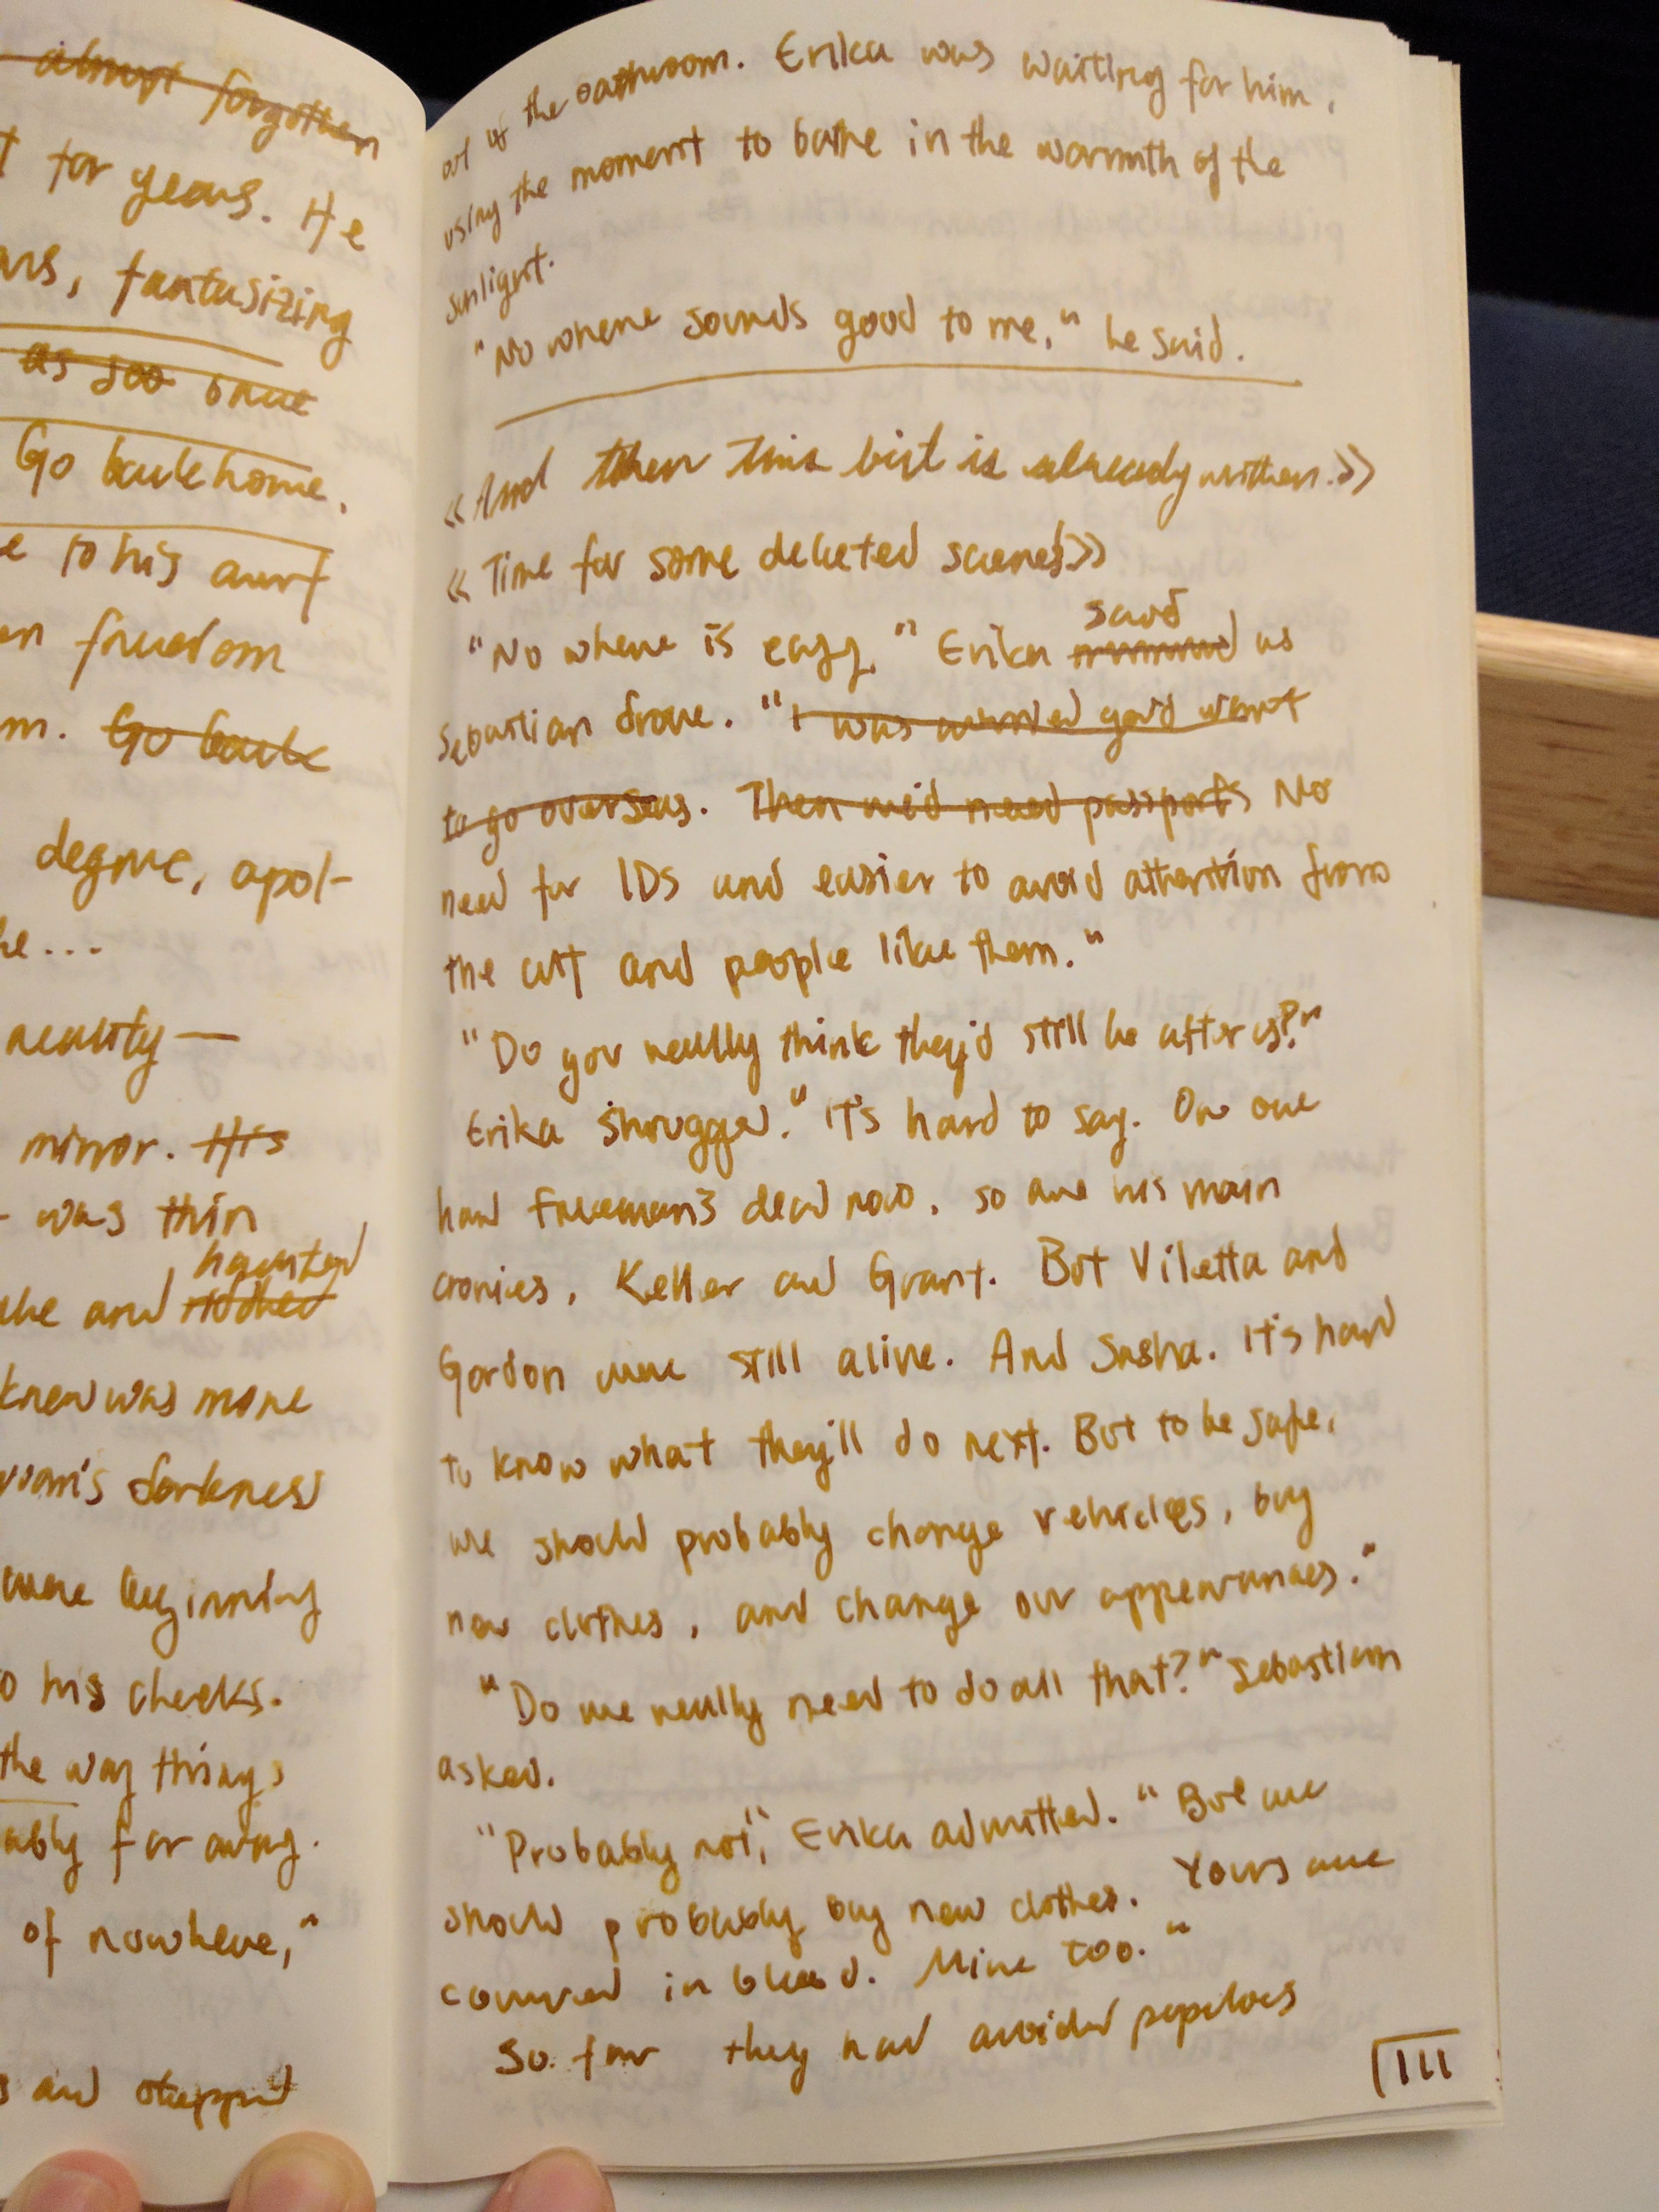 almost forgotten
for years. He
fantasizing
as soo once
Go back home.
to his aunt
freedom
Go back
degree, apol-
he...
reality —
mirror. His
was thin
haunted
and
knew was more
darkness
were beginning
his cheeks.
the way things
far away.
of nowhere,"
and stepped
out of the bathroom. Erika was waiting for him,
using the moment to bathe in the warmth of the
sunlight.
"No where sounds good to me," he said.
«And then this bit is already written.»
«Time for some deleted scenes»
said
"No where is easy," Erika as
Sebastian drove. "I was worried you'd want
to go overseas. Then we'd need passports No
need for IDs and easier to avoid attention from
the cult and people like them."
"Do you really think they'd still be after us?"
Erika shrugged. "It's hard to say. On one
hand Freeman's dead now, so are his main
cronies, Keller and Grant. But Viletta and
Gordon were still alive. And Sasha. It's hard
to know what they'll do next. But to be safe,
we should probably change vehicles, buy
new clothes, and change our appearances."
"Do we really need to do all that?" Sebastian
asked.
"Probably not," Erika admitted. "But we
should probably buy new clothes. Yours are
covered in blood. Mine too."
So far they had avoided populous
111